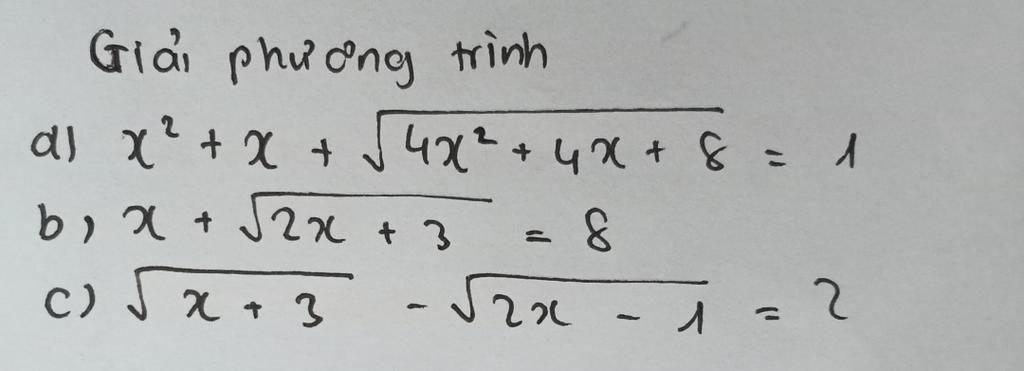 Giải phương trình
a) x² + x + √(4x² + 4x + 8) = 1
b, x + √(2x + 3) = 8
c) √(x + 3) - √(2x - 1) = 2